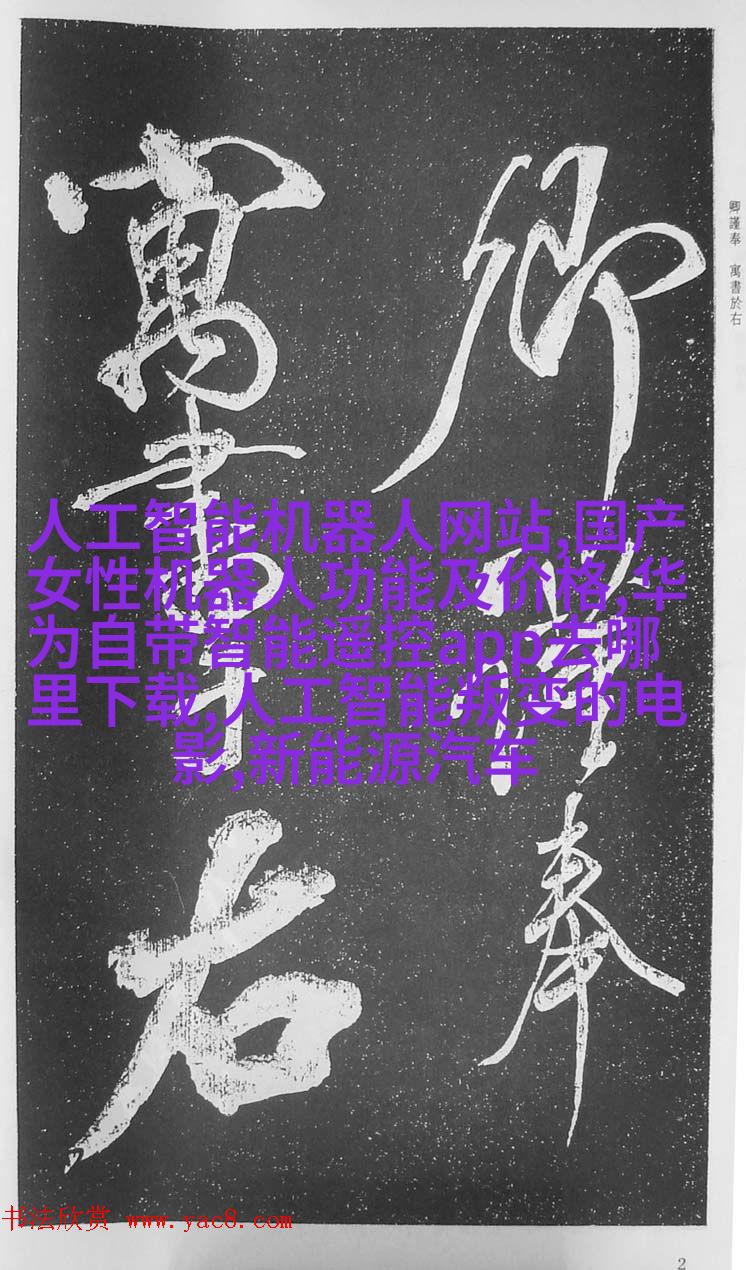 卿謹奉
寓書右
卿謹奉　寓書於右
人工智能机器人网站,国产
女性机器人功能及价格,华
为自带智能遥控app去哪
里下载,人工智能叛变的电
影,新能源汽车
书法欣赏 www.yac8.com
2